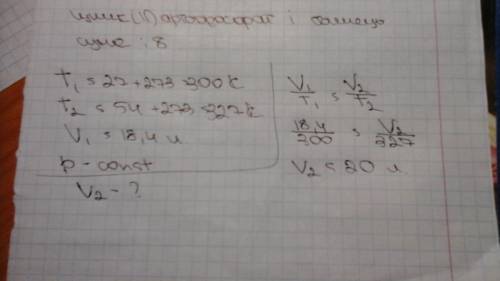 цинк (II) ортофосфат і
: 8
T₁ = 27 + 273 = 300 K
T₂ = 54 + 273 = 327 K
V₁ = 18,4 л
p - const
V₂ - ?
V₁/T₁ = V₂/T₂
18,4/300 = V₂/327
V₂ = 20 л